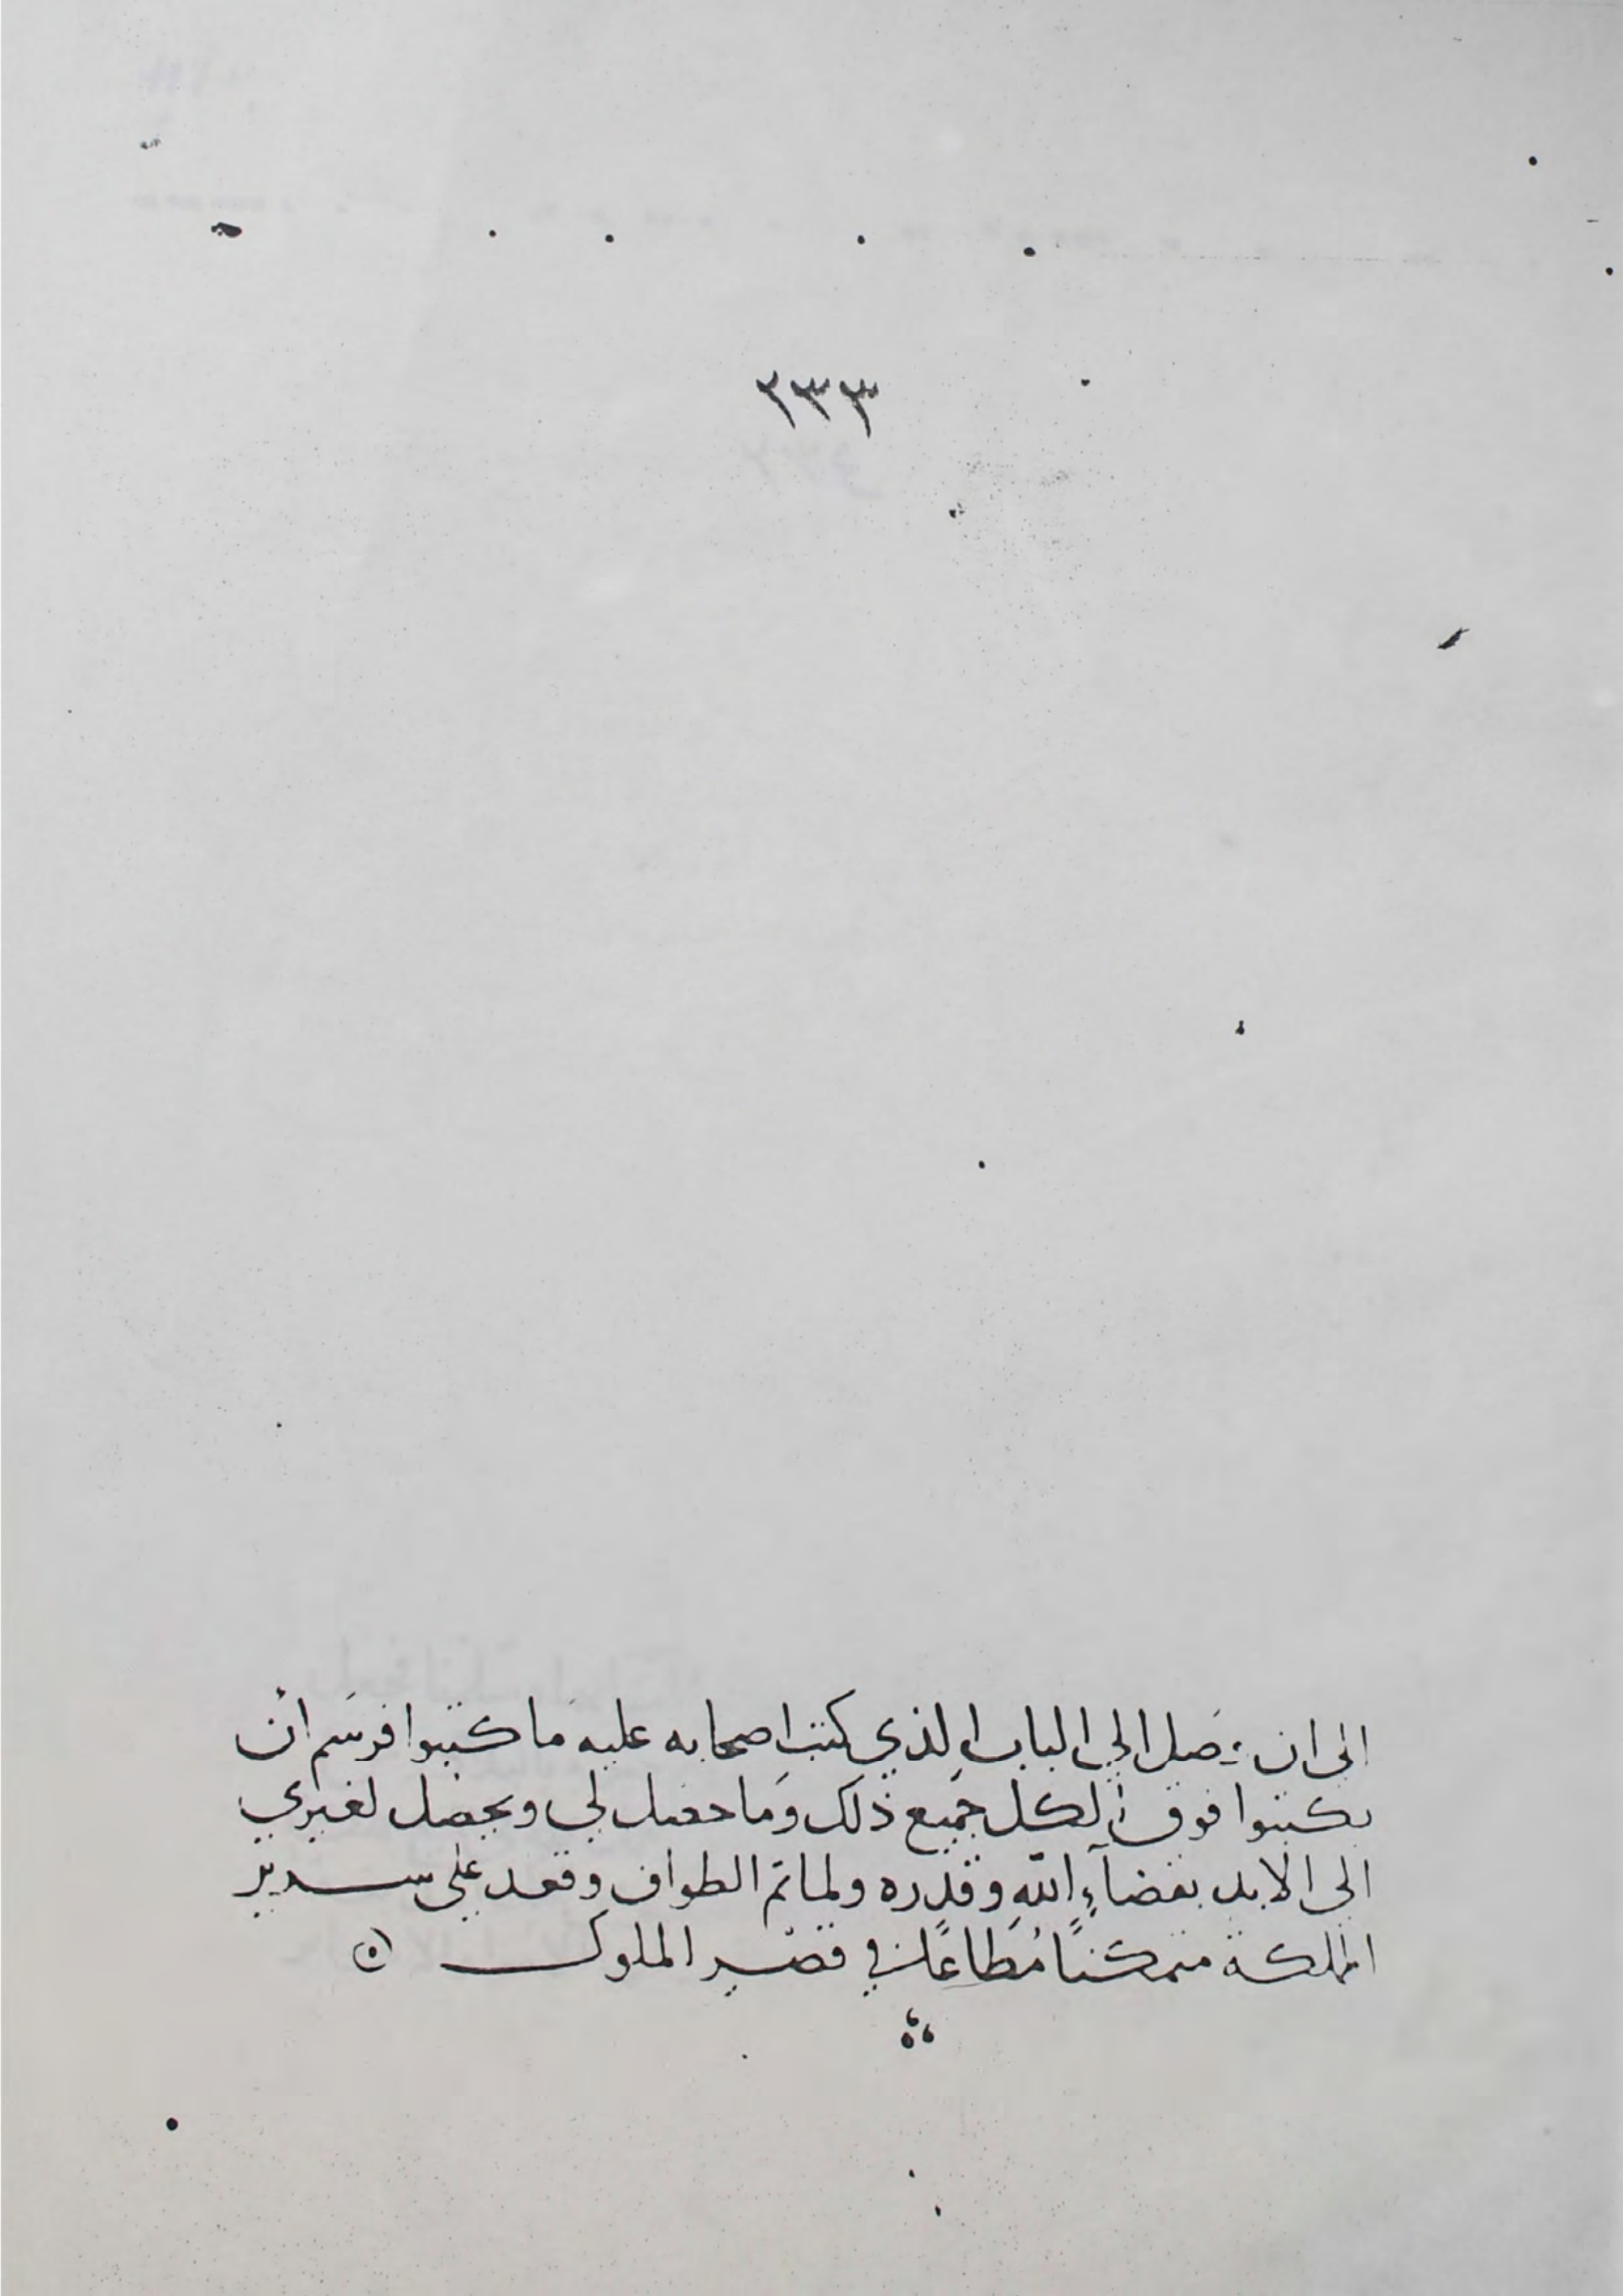 ٢٣٣
الى ان وصل الى الباب الذي كتب اصحابه عليه ما كتبوا فرسم ان
يكتبوا فوق الكل جميع ذلك وما حصل لي ويحصل لغيري
الى الابد بقضآء الله وقدره ولما تم الطواف وقعد على سرير
المملكة متمكنًا مُطَاعًا في قصر الملوك